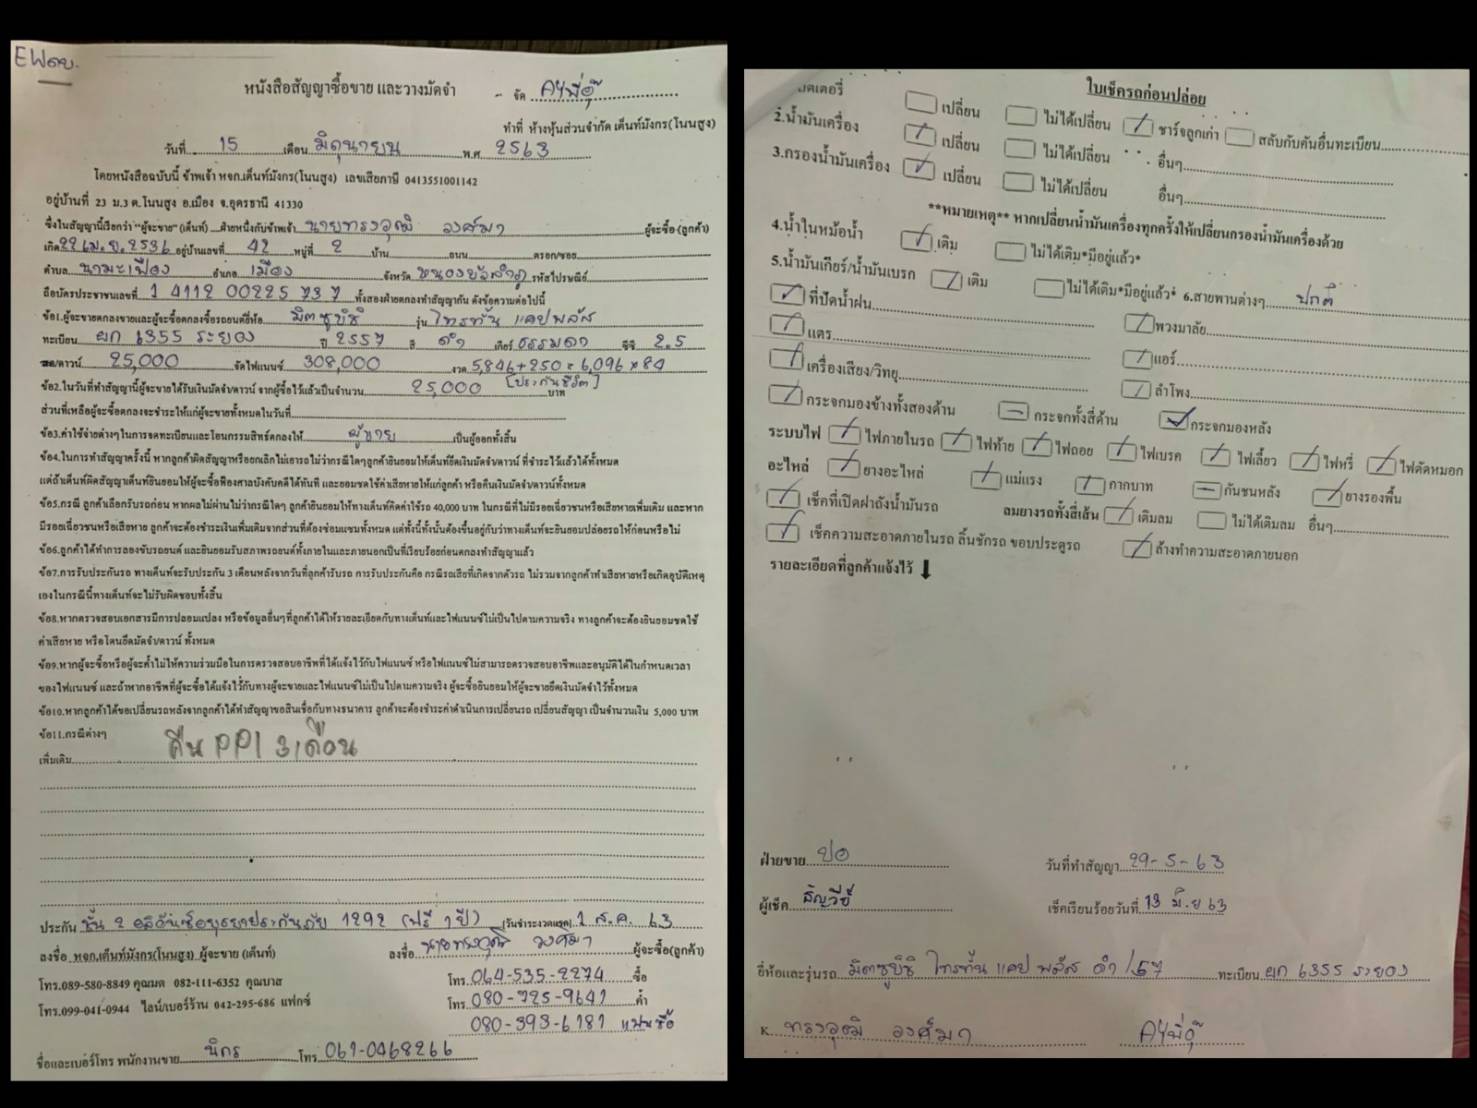 EW ดบ.
หนังสือสัญญาซื้อขาย และวางมัดจำ - จัด AYพี่อุ๊
ทำที่ ห้างหุ้นส่วนจำกัด เต็นท์มังกร(โนนสูง)
วันที่ 15 เดือน มิถุนายน พ.ศ 2563
โดยหนังสือฉบับนี้ ข้าพเจ้า หจก.เต็นท์มังกร(โนนสูง) เลขเสียภาษี 0413551001142
อยู่บ้านที่ 23 ม.3 ต.โนนสูง อ.เมือง จ.อุดรธานี 41330
ซึ่งในสัญญานี้เรียกว่า "ผู้จะขาย" (เต็นท์) ฝ่ายหนึ่งกับข้าพเจ้า นายทรงวุฒิ วงศ์มา ผู้จะซื้อ (ลูกค้า)
เกิด 22 เม.ย. 2536 อยู่บ้านเลขที่ 42 หมู่ที่ 2 บ้าน ถนน ตรอก/ซอย
ตำบล นามะเฟือง อำเภอ เมือง จังหวัด หนองบัวลำภู รหัสไปรษณีย์
ถือบัตรประชาชนเลขที่ 1 4112 00225 73 7 ทั้งสองฝ่ายตกลงทำสัญญากัน ดังข้อความต่อไปนี้
ข้อ1.ผู้จะขายตกลงขายและผู้จะซื้อตกลงซื้อรถยนต์ยี่ห้อ มิตซูบิชิ รุ่น ไทรทัน แคปพลัส
ทะเบียน ผก 6355 ระยอง ปี 2557 สี ดำ เกียร์ ธรรมดา ซีซี 2.5
สด/ดาวน์ 25,000 จัดไฟแนนซ์ 308,000 งวด 5,846+250 = 6,096 × 84
[ประกันชีวิต]
ข้อ2.ในวันที่ทำสัญญานี้ผู้จะขายได้รับเงินมัดจำ/ดาวน์ จากผู้ซื้อไว้แล้วเป็นจำนวน 25,000 บาท
ส่วนที่เหลือผู้จะซื้อตกลงจะชำระให้แก่ผู้จะขายทั้งหมดในวันที่
ข้อ3.ค่าใช้จ่ายต่างๆในการจดทะเบียนและโอนกรรมสิทธิ์ตกลงให้ ผู้ขาย เป็นผู้ออกทั้งสิ้น
ข้อ4.ในการทำสัญญาครั้งนี้ หากลูกค้าผิดสัญญาหรือยกเลิกไม่เอารถ ไม่ว่ากรณีใดๆลูกค้ายินยอมให้เต็นท์ยึดเงินมัดจำ/ดาวน์ ที่ชำระไว้แล้วได้ทั้งหมด
แต่ถ้าเต็นท์ผิดสัญญาเต็นท์ยินยอมให้ผู้จะซื้อฟ้องศาลบังคับคดีได้ทันที และยอมชดใช้ค่าเสียหายให้แก่ลูกค้า หรือคืนเงินมัดจำ/ดาวน์ทั้งหมด
ข้อ5.กรณี ลูกค้าเลือกรับรถก่อน หากผลไม่ผ่านไม่ว่ากรณีใดๆ ลูกค้ายินยอมให้ทางเต็นท์คิดค่าใช้รถ 40,000 บาท ในกรณีที่ไม่มีรอยเฉี่ยวชนหรือเสียหายเพิ่มเติม และหาก
มีรอยเฉี่ยวชนหรือเสียหาย ลูกค้าจะต้องชำระเงินเพิ่มเติมจากส่วนที่ต้องซ่อมแซมทั้งหมด แต่ทั้งนี้ทั้งนั้นต้องขึ้นอยู่กับว่าทางเต็นท์จะยินยอมปล่อยรถให้ก่อนหรือไม่
ข้อ6.ลูกค้าได้ทำการลองขับรถยนต์ และยินยอมรับสภาพรถยนต์ทั้งภายในและภายนอกเป็นที่เรียบร้อยก่อนตกลงทำสัญญาแล้ว
ข้อ7.การรับประกันรถ ทางเต็นท์จะรับประกัน 3 เดือนหลังจากวันที่ลูกค้ารับรถ การรับประกันคือ กรณีรถเสียที่เกิดจากตัวรถ ไม่รวมจากลูกค้าทำเสียหายหรือเกิดอุบัติเหตุ
เองในกรณีนี้ทางเต็นท์จะไม่รับผิดชอบทั้งสิ้น
ข้อ8.หากตรวจสอบเอกสารมีการปลอมแปลง หรือข้อมูลอื่นๆที่ลูกค้าได้ให้รายละเอียดกับทางเต็นท์และไฟแนนซ์ไม่เป็นไปตามความจริง ทางลูกค้าจะต้องยินยอมชดใช้
ค่าเสียหาย หรือโดนยึดมัดจำ/ดาวน์ ทั้งหมด
ข้อ9.หากผู้จะซื้อหรือผู้จะค้ำไม่ให้ความร่วมมือในการตรวจสอบอาชีพที่ได้แจ้งไว้กับไฟแนนซ์ หรือไฟแนนซ์ไม่สามารถตรวจสอบอาชีพและอนุมัติได้ในกำหนดเวลา
ของไฟแนนซ์ และถ้าหากอาชีพที่ผู้จะซื้อได้แจ้งไว้กับทางผู้จะขายและไฟแนนซ์ไม่เป็นไปตามความจริง ผู้จะซื้อยินยอมให้ผู้จะขายยึดเงินมัดจำไว้ทั้งหมด
ข้อ10.หากลูกค้าได้ขอเปลี่ยนรถหลังจากลูกค้าได้ทำสัญญาขอสินเชื่อกับทางธนาคาร ลูกค้าจะต้องชำระค่าดำเนินการเปลี่ยนรถ เปลี่ยนสัญญา เป็นจำนวนเงิน 5,000 บาท
ข้อ11.กรณีต่างๆ
เพิ่มเติม คืน PPI 3 เดือน
ประกัน ชั้น 2 อลิอันซ์อยุธยาประกันภัย 1292 (ฟรี 1 ปี) (วันชำระงวดแรก) 1 ส.ค. 63
ลงชื่อ หจก.เต็นท์มังกร(โนนสูง) ผู้จะขาย (เต็นท์) ลงชื่อ นายทรงวุฒิ วงศ์มา ผู้จะซื้อ(ลูกค้า)
โทร.089-580-8849 คุณมด 082-111-6352 คุณบาส โทร. 064-535-2274 ซื้อ
โทร.099-041-0944 ไลน์/เบอร์ร้าน 042-295-686 แฟกซ์ โทร. 080-725-9641 ค้ำ
080-393-6181 แฟนซื้อ
ชื่อและเบอร์โทร พนักงานขาย นิกร โทร. 061-0468266
ใบเช็ครถก่อนปล่อย
แบตเตอรี่ เปลี่ยน ไม่ได้เปลี่ยน ชาร์จลูกเก่า สลับกับคันอื่นทะเบียน
2.น้ำมันเครื่อง เปลี่ยน ไม่ได้เปลี่ยน อื่นๆ
3.กรองน้ำมันเครื่อง เปลี่ยน ไม่ได้เปลี่ยน อื่นๆ
**หมายเหตุ** หากเปลี่ยนน้ำมันเครื่องทุกครั้งให้เปลี่ยนกรองน้ำมันเครื่องด้วย
4.น้ำในหม้อน้ำ เติม ไม่ได้เติม*มีอยู่แล้ว*
5.น้ำมันเกียร์/น้ำมันเบรก เติม ไม่ได้เติม*มีอยู่แล้ว* 6.สายพานต่างๆ ปกติ
ที่ปัดน้ำฝน พวงมาลัย
แตร แอร์
เครื่องเสียง/วิทยุ ลำโพง
กระจกมองข้างทั้งสองด้าน กระจกทั้งสี่ด้าน กระจกมองหลัง
ระบบไฟ ไฟภายในรถ ไฟท้าย ไฟถอย ไฟเบรค ไฟเลี้ยว ไฟหรี่ ไฟตัดหมอก
อะไหล่ ยางอะไหล่ แม่แรง กากบาท กันชนหลัง ยางรองพื้น
เช็คที่เปิดฝาถังน้ำมันรถ ลมยางรถทั้งสี่เส้น เติมลม ไม่ได้เติมลม อื่นๆ
เช็คความสะอาดภายในรถ ลิ้นชักรถ ขอบประตูรถ ล้างทำความสะอาดภายนอก
รายละเอียดที่ลูกค้าแจ้งไว้ ⬇
ฝ่ายขาย ปอ วันที่ทำสัญญา 29-5-63
ผู้เช็ค เช็คเรียบร้อยวันที่ 13 มิ.ย 63
ยี่ห้อและรุ่นรถ มิตซูบิชิ ไทรทัน แคป พลัส ดำ /57 ทะเบียน ผก 6355 ระยอง
K. ทรงวุฒิ วงศ์มา AYพี่อุ๊